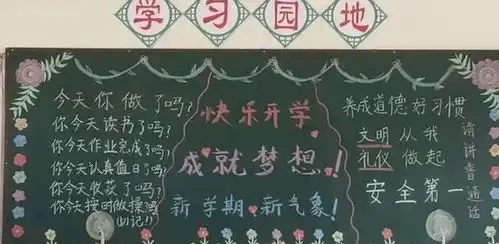 学习园地
今天你做了吗?
你今天读书了吗?
你今天作业完成了吗?
你今天认真值日了吗?
你今天收获了吗?
你今天按时做操吗
(切记!)
快乐开学
成就梦想!
新学期 新气象!
养成道德好习惯
文明 从我
礼仪 做起
安全第一
请讲普通话